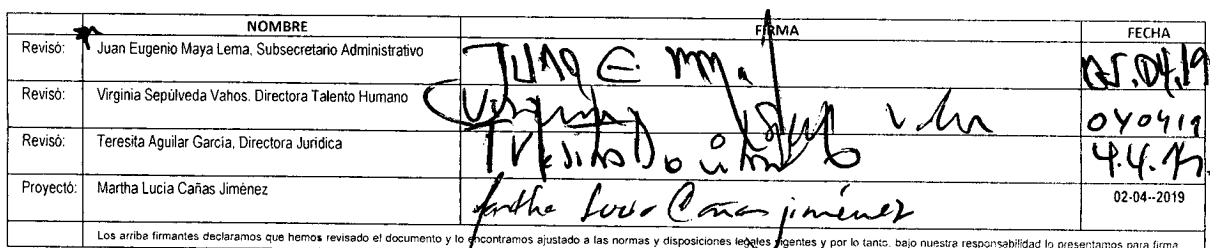 NOMBRE FIRMA FECHA
Revisó: Juan Eugenio Maya Lema, Subsecretario Administrativo Juan E. MM. 05.04.19
Revisó: Virginia Sepúlveda Vahos. Directora Talento Humano Virginia 040419
Revisó: Teresita Aguilar García, Directora Jurídica Teresita 4.4.19.
Proyectó: Martha Lucia Cañas Jiménez Martha Lucia Cañas jiménez 02-04--2019
Los arriba firmantes declaramos que hemos revisado el documento y lo encontramos ajustado a las normas y disposiciones legales vigentes y por lo tanto, bajo nuestra responsabilidad lo presentamos para firma